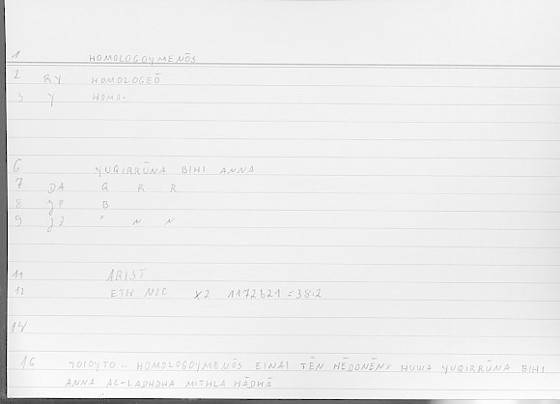 1 HOMOLOGOYMENŌS
2 RY HOMOLOGEŌ
3 Y HOMO-
6 YUQIRRŪNA BIHI ANNA
7 DA Q R R
8 JP B
9 JZ " N N
11 ARIST
12 ETH NIC X2 1172b21 = 38.2
14
16 TOIOYTO .. HOMOLOGOYMENŌS EINAI TĒN HĒDONĒN; HUWA YUQIRRŪNA BIHI
ANNA AL-LADHDHA MITHLA HĀDHĀ